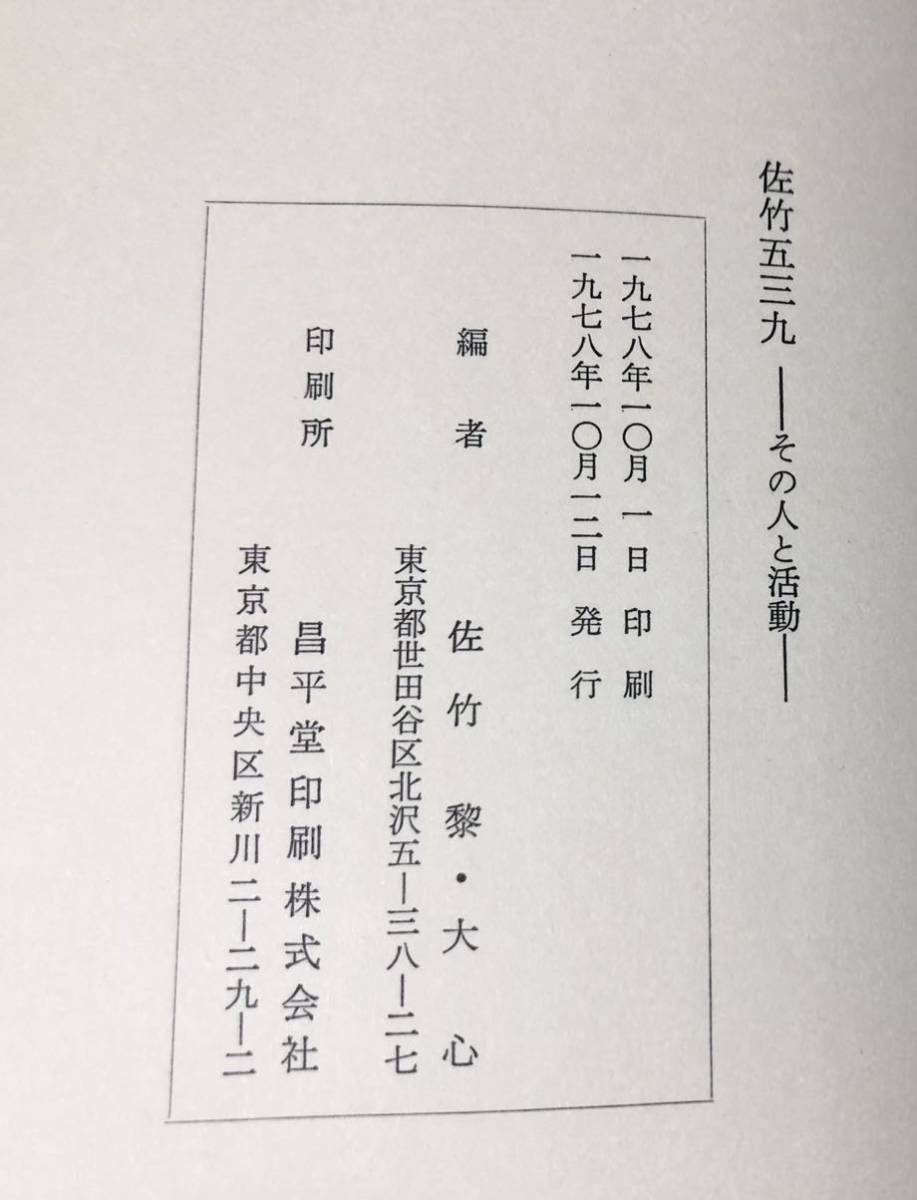 佐竹五三九 ――その人と活動――
一九七八年一〇月一日 印刷
一九七八年一〇月一二日 発行
編者 佐竹黎・大心
東京都世田谷区北沢五―三八―二七
印刷所 昌平堂印刷株式会社
東京都中央区新川二―二九―二